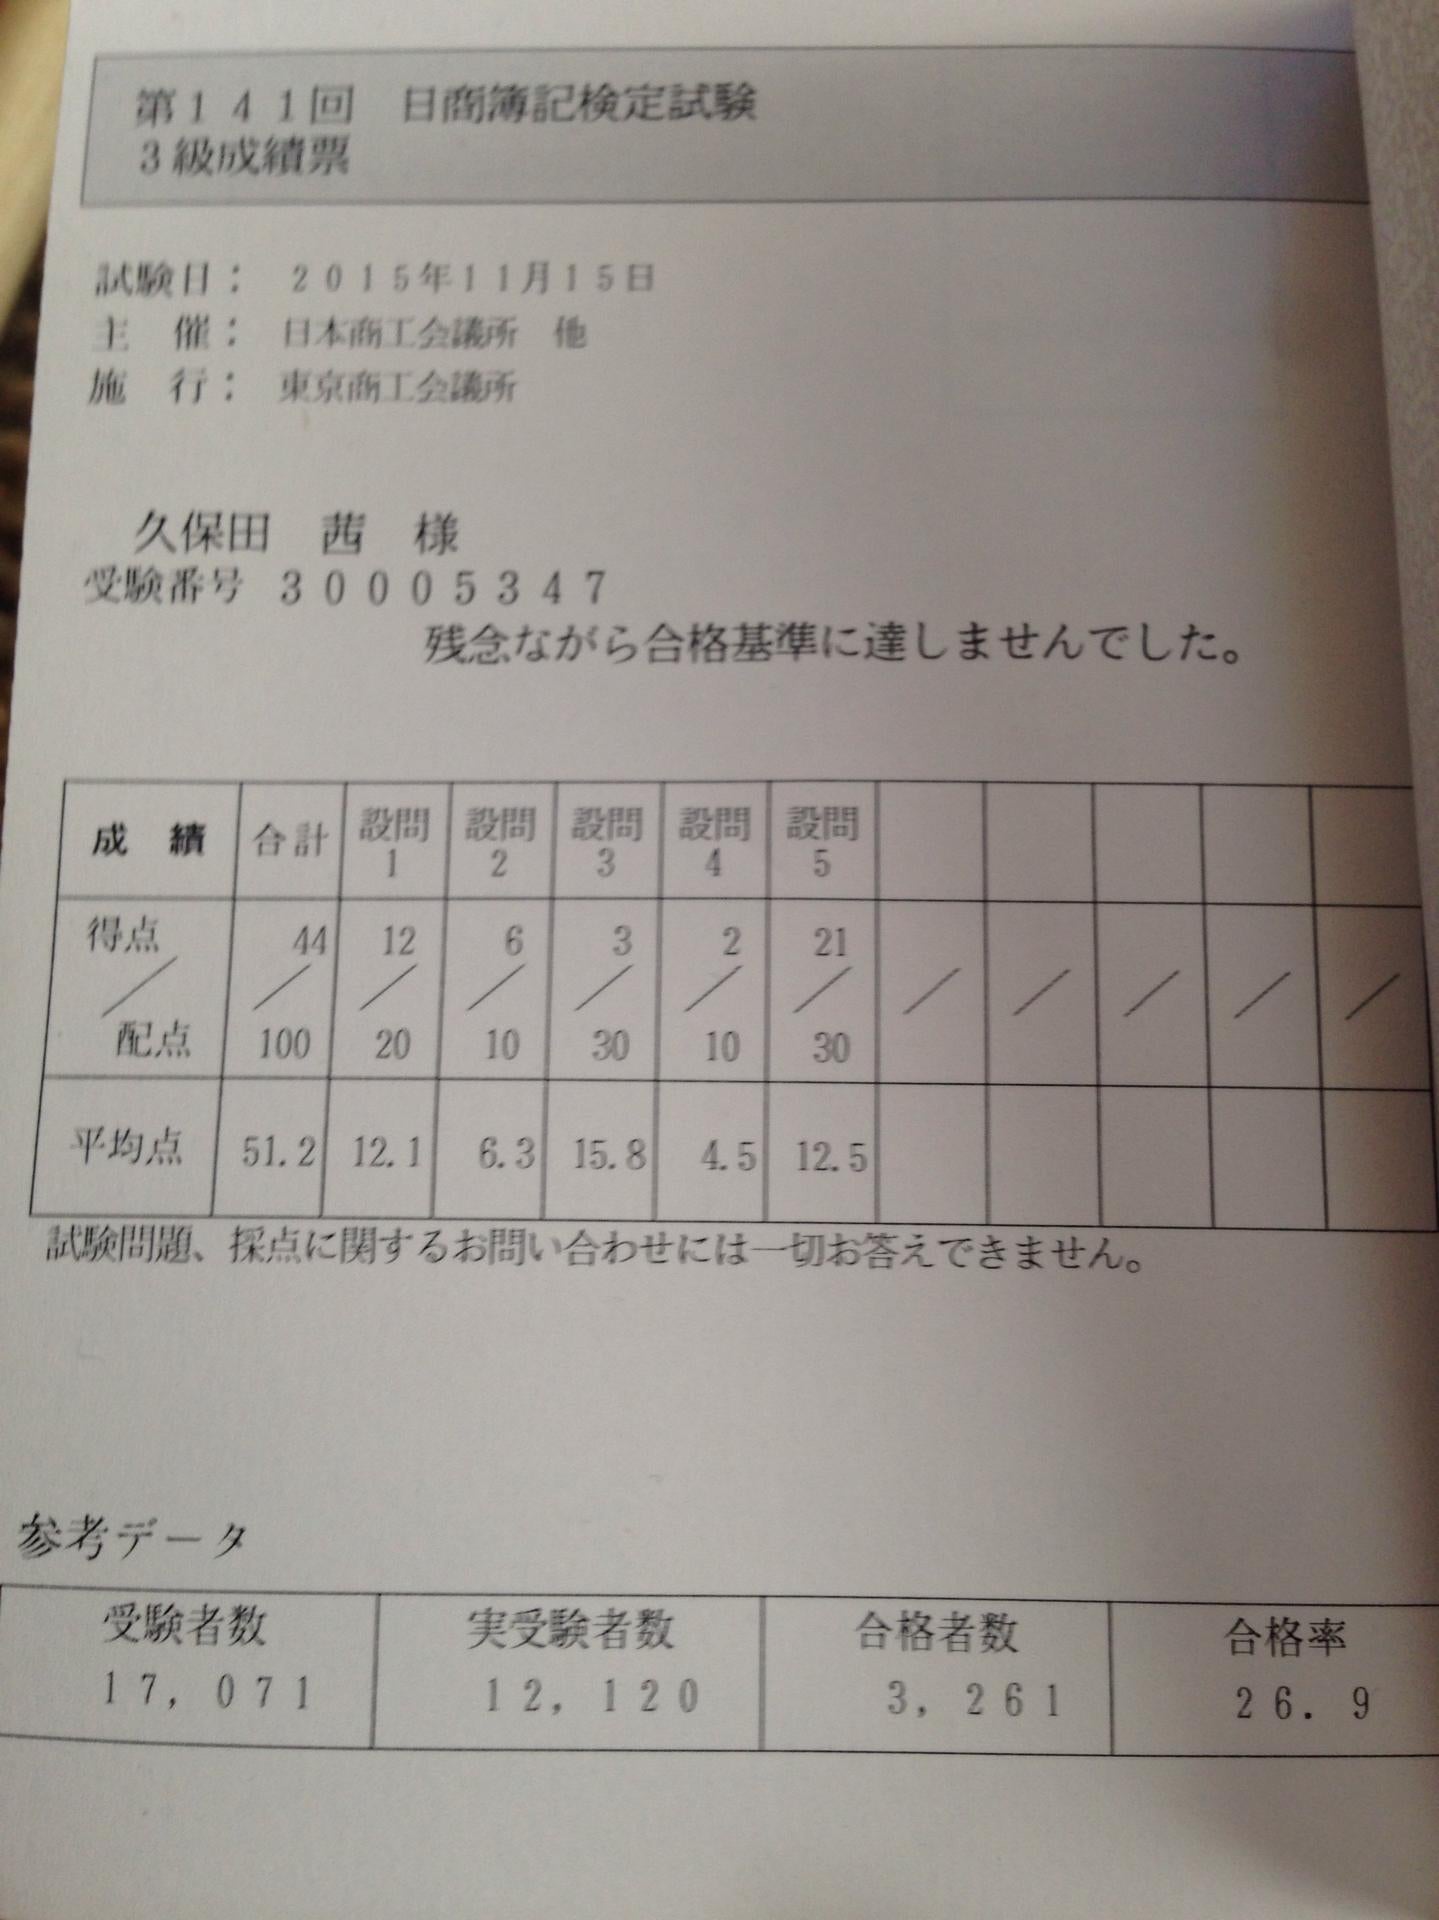 第１４１回　日商簿記検定試験
３級成績票
試験日：　２０１５年１１月１５日
主　催：　日本商工会議所　他
施　行：　東京商工会議所
久保田　茜　様
受験番号　３０００５３４７
残念ながら合格基準に達しませんでした。
成　績　合計　設問1　設問2　設問3　設問4　設問5
得点　44　12　6　3　2　21
／　／　／　／　／　／　／　／　／　／　／　／
配点　100　20　10　30　10　30
平均点　51.2　12.1　6.3　15.8　4.5　12.5
試験問題、採点に関するお問い合わせには一切お答えできません。
参考データ
受験者数　実受験者数　合格者数　合格率
１７，０７１　１２，１２０　３，２６１　２６．９